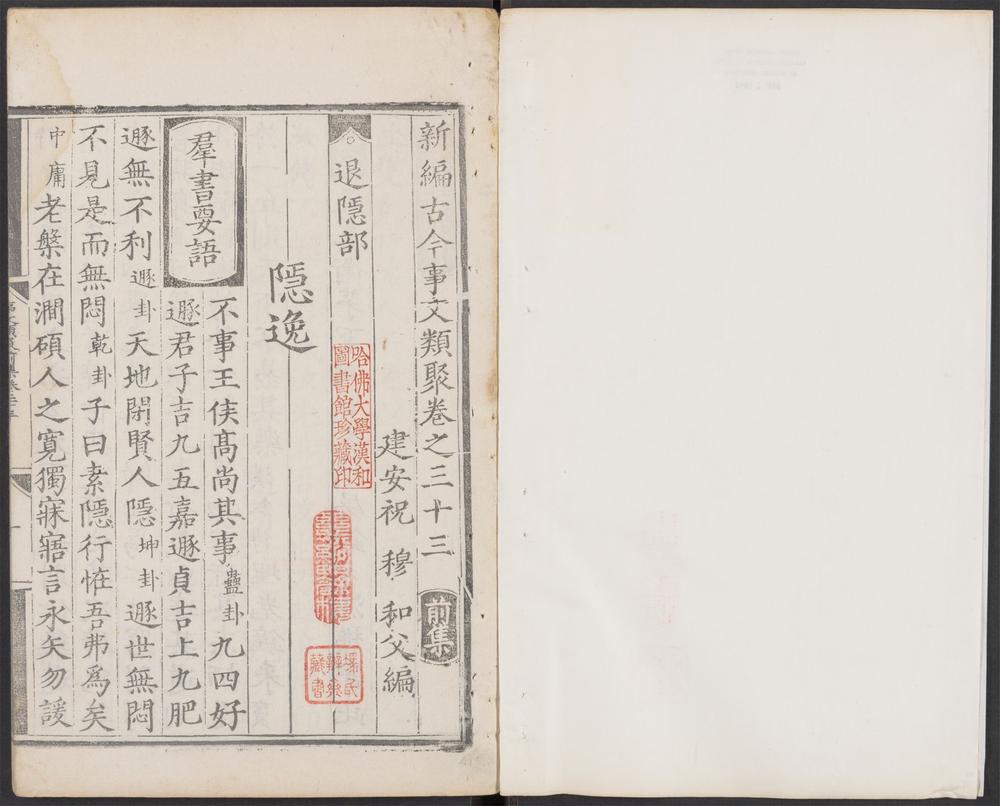 新編古今事文類聚卷之三十三 前集
建安祝 穆 和父編
退隱部
隱逸
羣書要語
不事王侯髙尚其事蠱卦九四好
遯君子吉九五嘉遯貞吉上九肥
遯無不利遯卦天地閉賢人隱坤卦遯世無悶
不見是而無悶乾卦子曰素隱行恠吾弗為矣
中庸老槃在澗碩人之寛獨寐寤言永矢勿諼
哈佛大學漢和
圖書館珍藏印